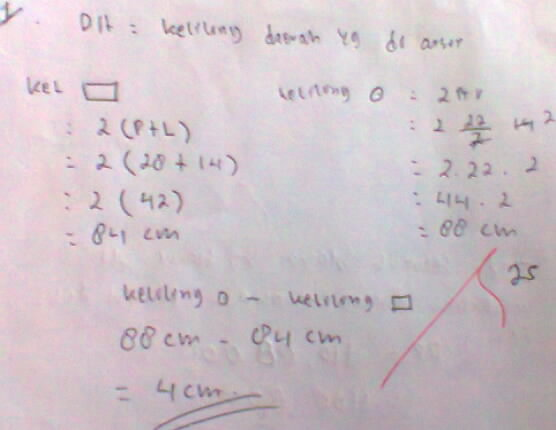 1.
Dit = keliling daerah yg di arsir
kel ▭
: 2 (P+L)
= 2 (28 + 14)
: 2 ( 42)
= 84 cm
keliling O = 2πr
= 2 22/7 14 2
= 2.22. 2
: 44. 2
= 88 cm
25
keliling O - keliling ▭
88 cm - 84 cm
= 4 cm